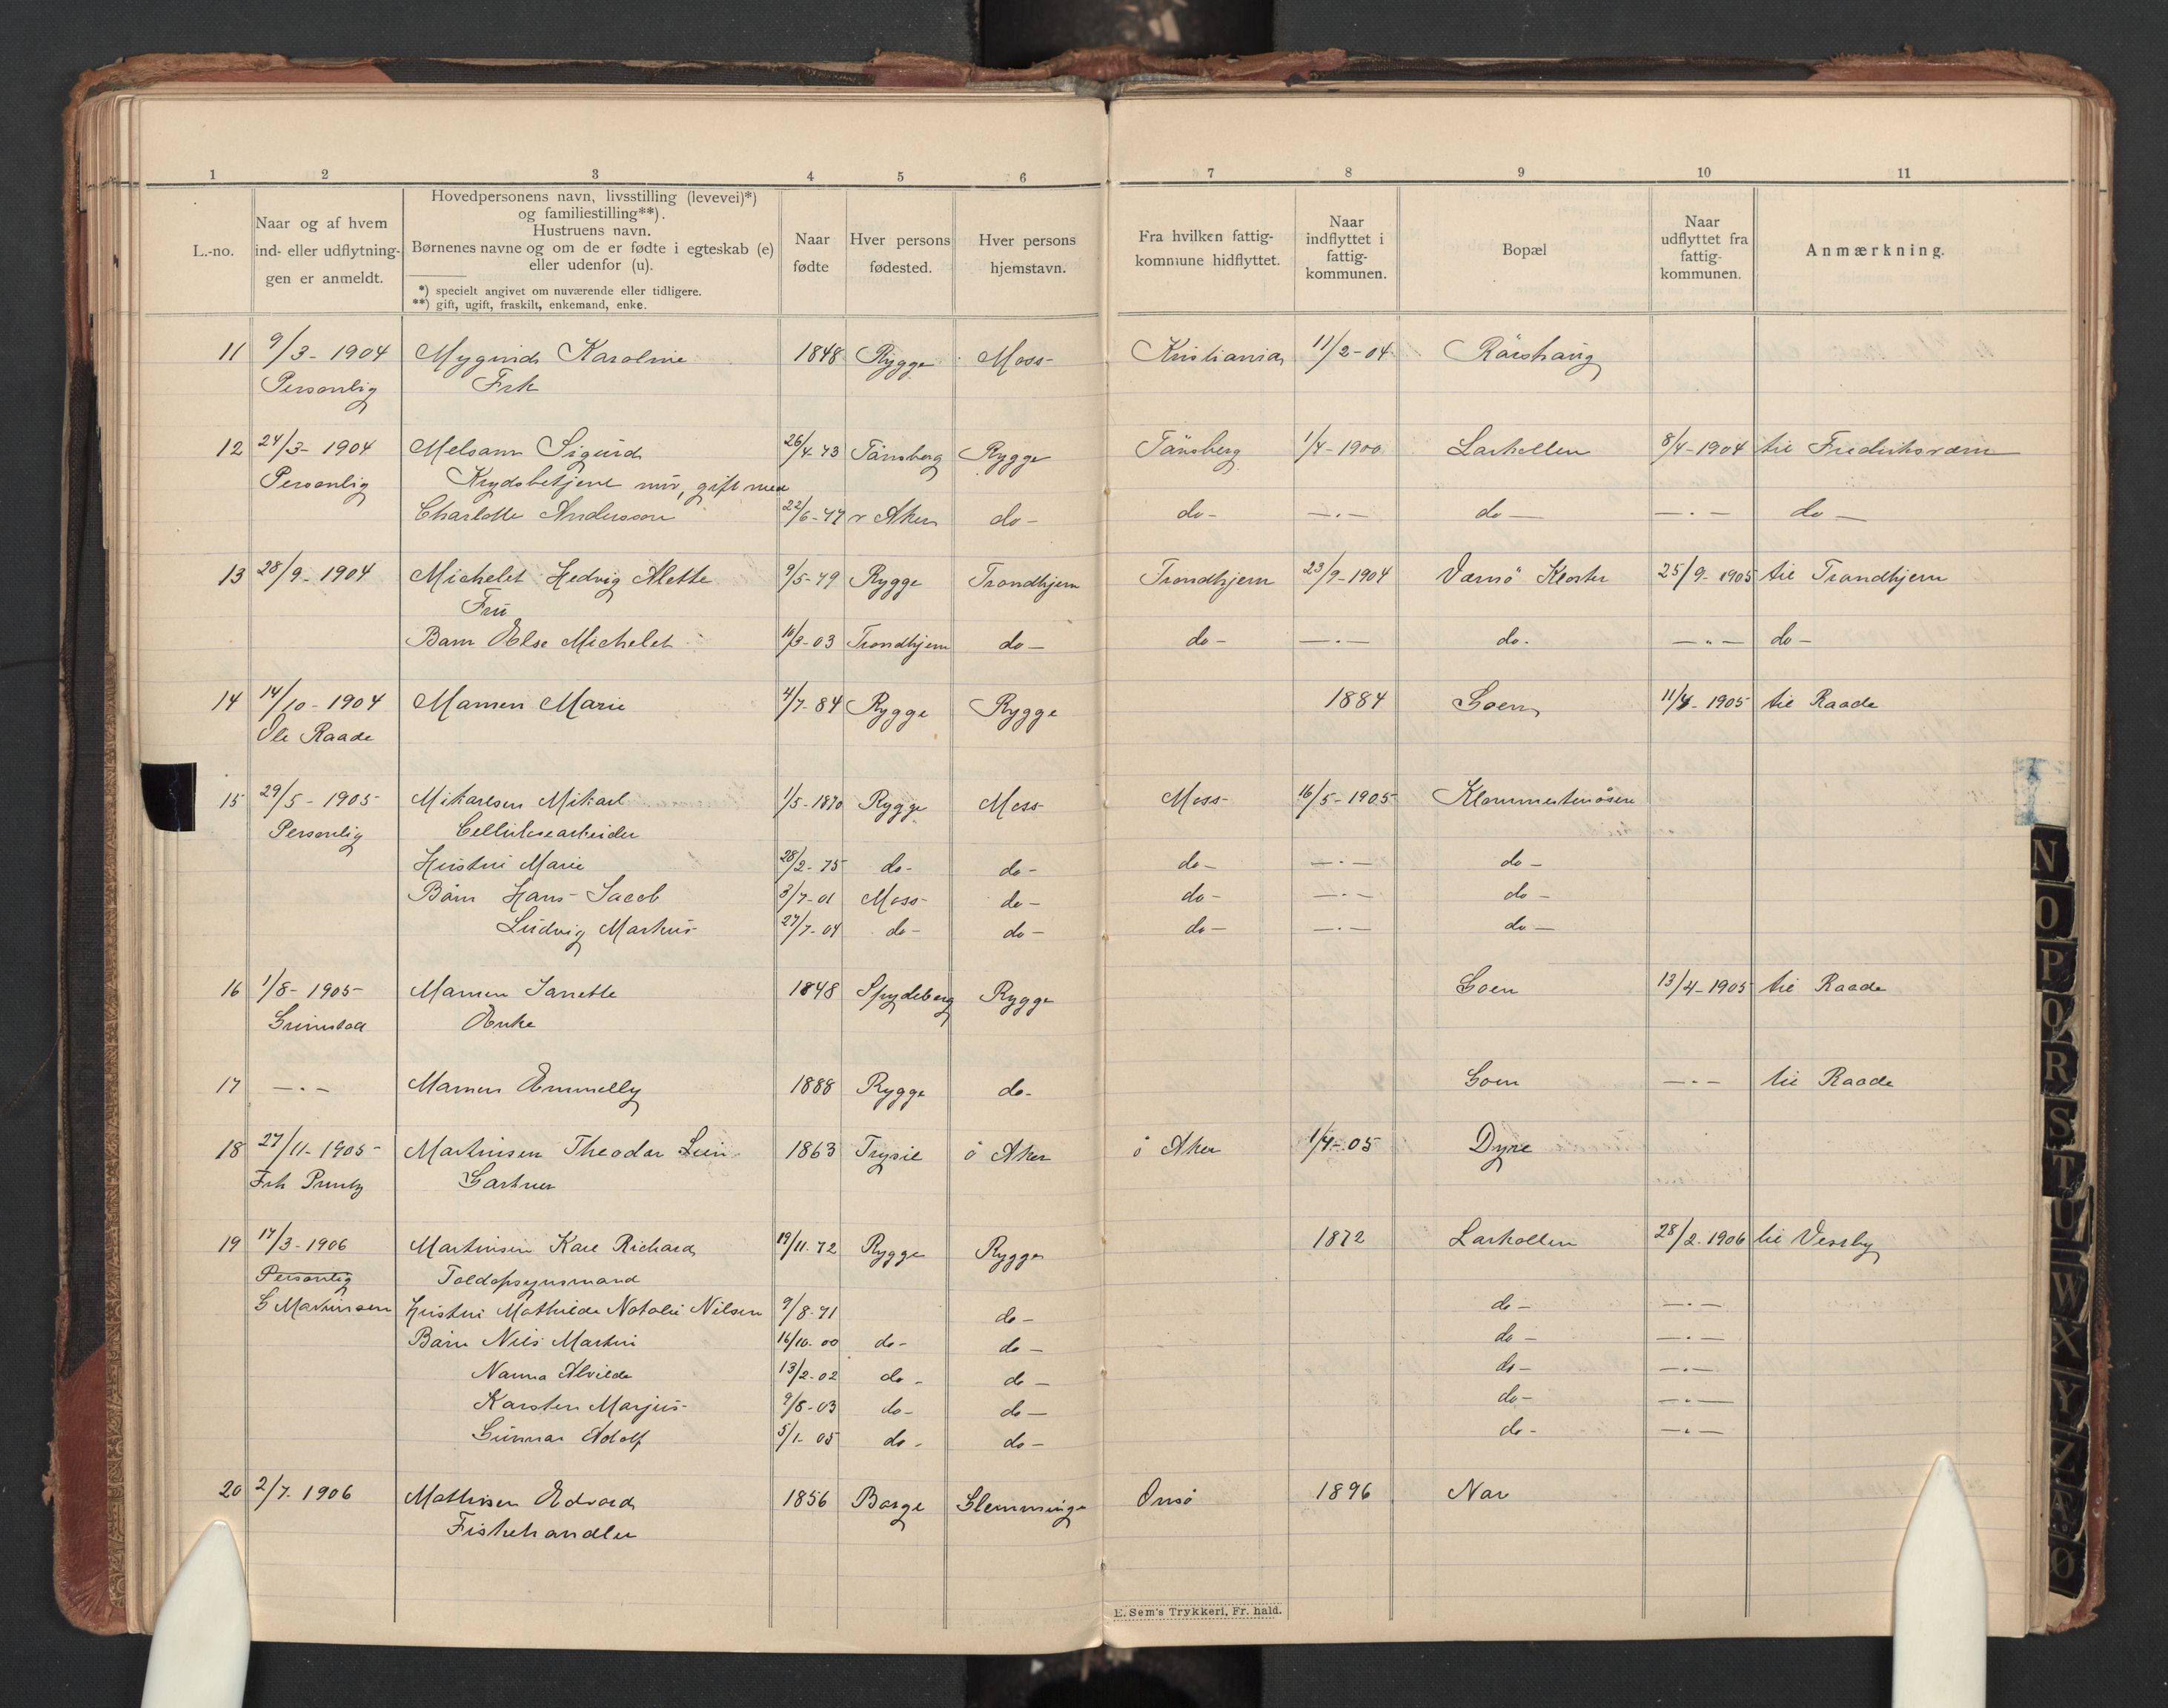 1 2 3 4 5 6 7 8 9 10 11
L.-no.
Naar og af hvem
ind- eller udflytnin-
gen er anmeldt.
Hovedpersonens navn, livsstilling (levevei)*)
og familiestilling**).
Hustruens navn.
Børnenes navne og om de er fødte i egteskab (e)
eller udenfor (u).
*) specielt angivet om nuværende eller tidligere.
**) gift, ugift, fraskilt, enkemand, enke.
Naar
fødte
Hver persons
fødested.
Hver persons
hjemstavn.
Fra hvilken fattig-
kommune hidflyttet.
Naar
indflyttet i
fattig-
kommunen.
Bopæl
Naar
udflyttet fra
fattig-
kommunen.
Anmærkning.
11 9/3 - 1904 Mygind Karoline 1848 Rygge Moss Kristiania 11/2-04 Rörshaug
Personlig Frk
12 24/3 - 1904 Melsom Sigurd 26/4-73 Tönsberg Rygge Tönsberg 1/4-1900 Larkollen 8/4-1904 til Fredriksværn
Personlig Krydsbetjent nuv, gift med
Charlotte Anderson 22/6-77 v Aker do - do - — . — do — — . — do —
13 28/9 - 1904 Michelet Hedvig Alette 9/5-79 Rygge Trondhjem Trondhjem 23/9-1904 Varnö Kloster 25/9-1905 til Trondhjem
Fru
Barn Else Michelet 10/3-03 Trondhjem do — do - — . — do. — " — do —
14 14/10 - 1904 Mamen Marie 4/7-84 Rygge Rygge 1884 Goen 11/4-1905 til Raade
Ole Raade
15 29/5 - 1905 Mikaelsen Mikael 1/5-1870 Rygge Moss Moss 16/5-1905 Klommestenåsen
Personlig Cellulosearbeider
Hustru Marie 28/2-75 do - do - do - — . — do -
Börn Hans Jacob 3/7-01 Moss do - do - — . — do -
Ludvig Markus 27/7-04 do - do - do - — . — do —
16 1/8 - 1905 Mamen Janette 1848 Spydeberg Rygge Goen 13/4-1905 til Raade
Grimstad Enke
17 — . — Mamen Emmelly 1888 Rygge do - Goen — . — til Raade
18 27/11 - 1905 Martinsen Theodor 1863 Trysil ö Aker ö Aker 1/4-05 Dyre
Frk Gartner
19 17/3 - 1906 Martinsen Karl Richard 19/11-72 Rygge Rygge 1872 Larkollen 28/2-1906 til Vestby
Personlig Toldopsynsmand
G Martinsen Hustru Mathilde Natalie Nilsen 9/8-71 do - do - — . —
Börn Nils Martin 16/10-00 do - do - do - — . —
Nanna Alvilde 13/2-02 do - do - do - — . —
Karsten Marjus 9/8-03 do - do — do - — . —
Gunnar Adolf 5/1-05 do - do - do - — . —
20 2/7-1906 Mathisen Edvard 1856 Borge Glemminge Onsö 1896 Nor
Fiskehandler
E. Sem's Trykkeri, Fr. hald.
N
O
P
Q
R
S
T
U
W
X
Y
Z
Æ
Ø